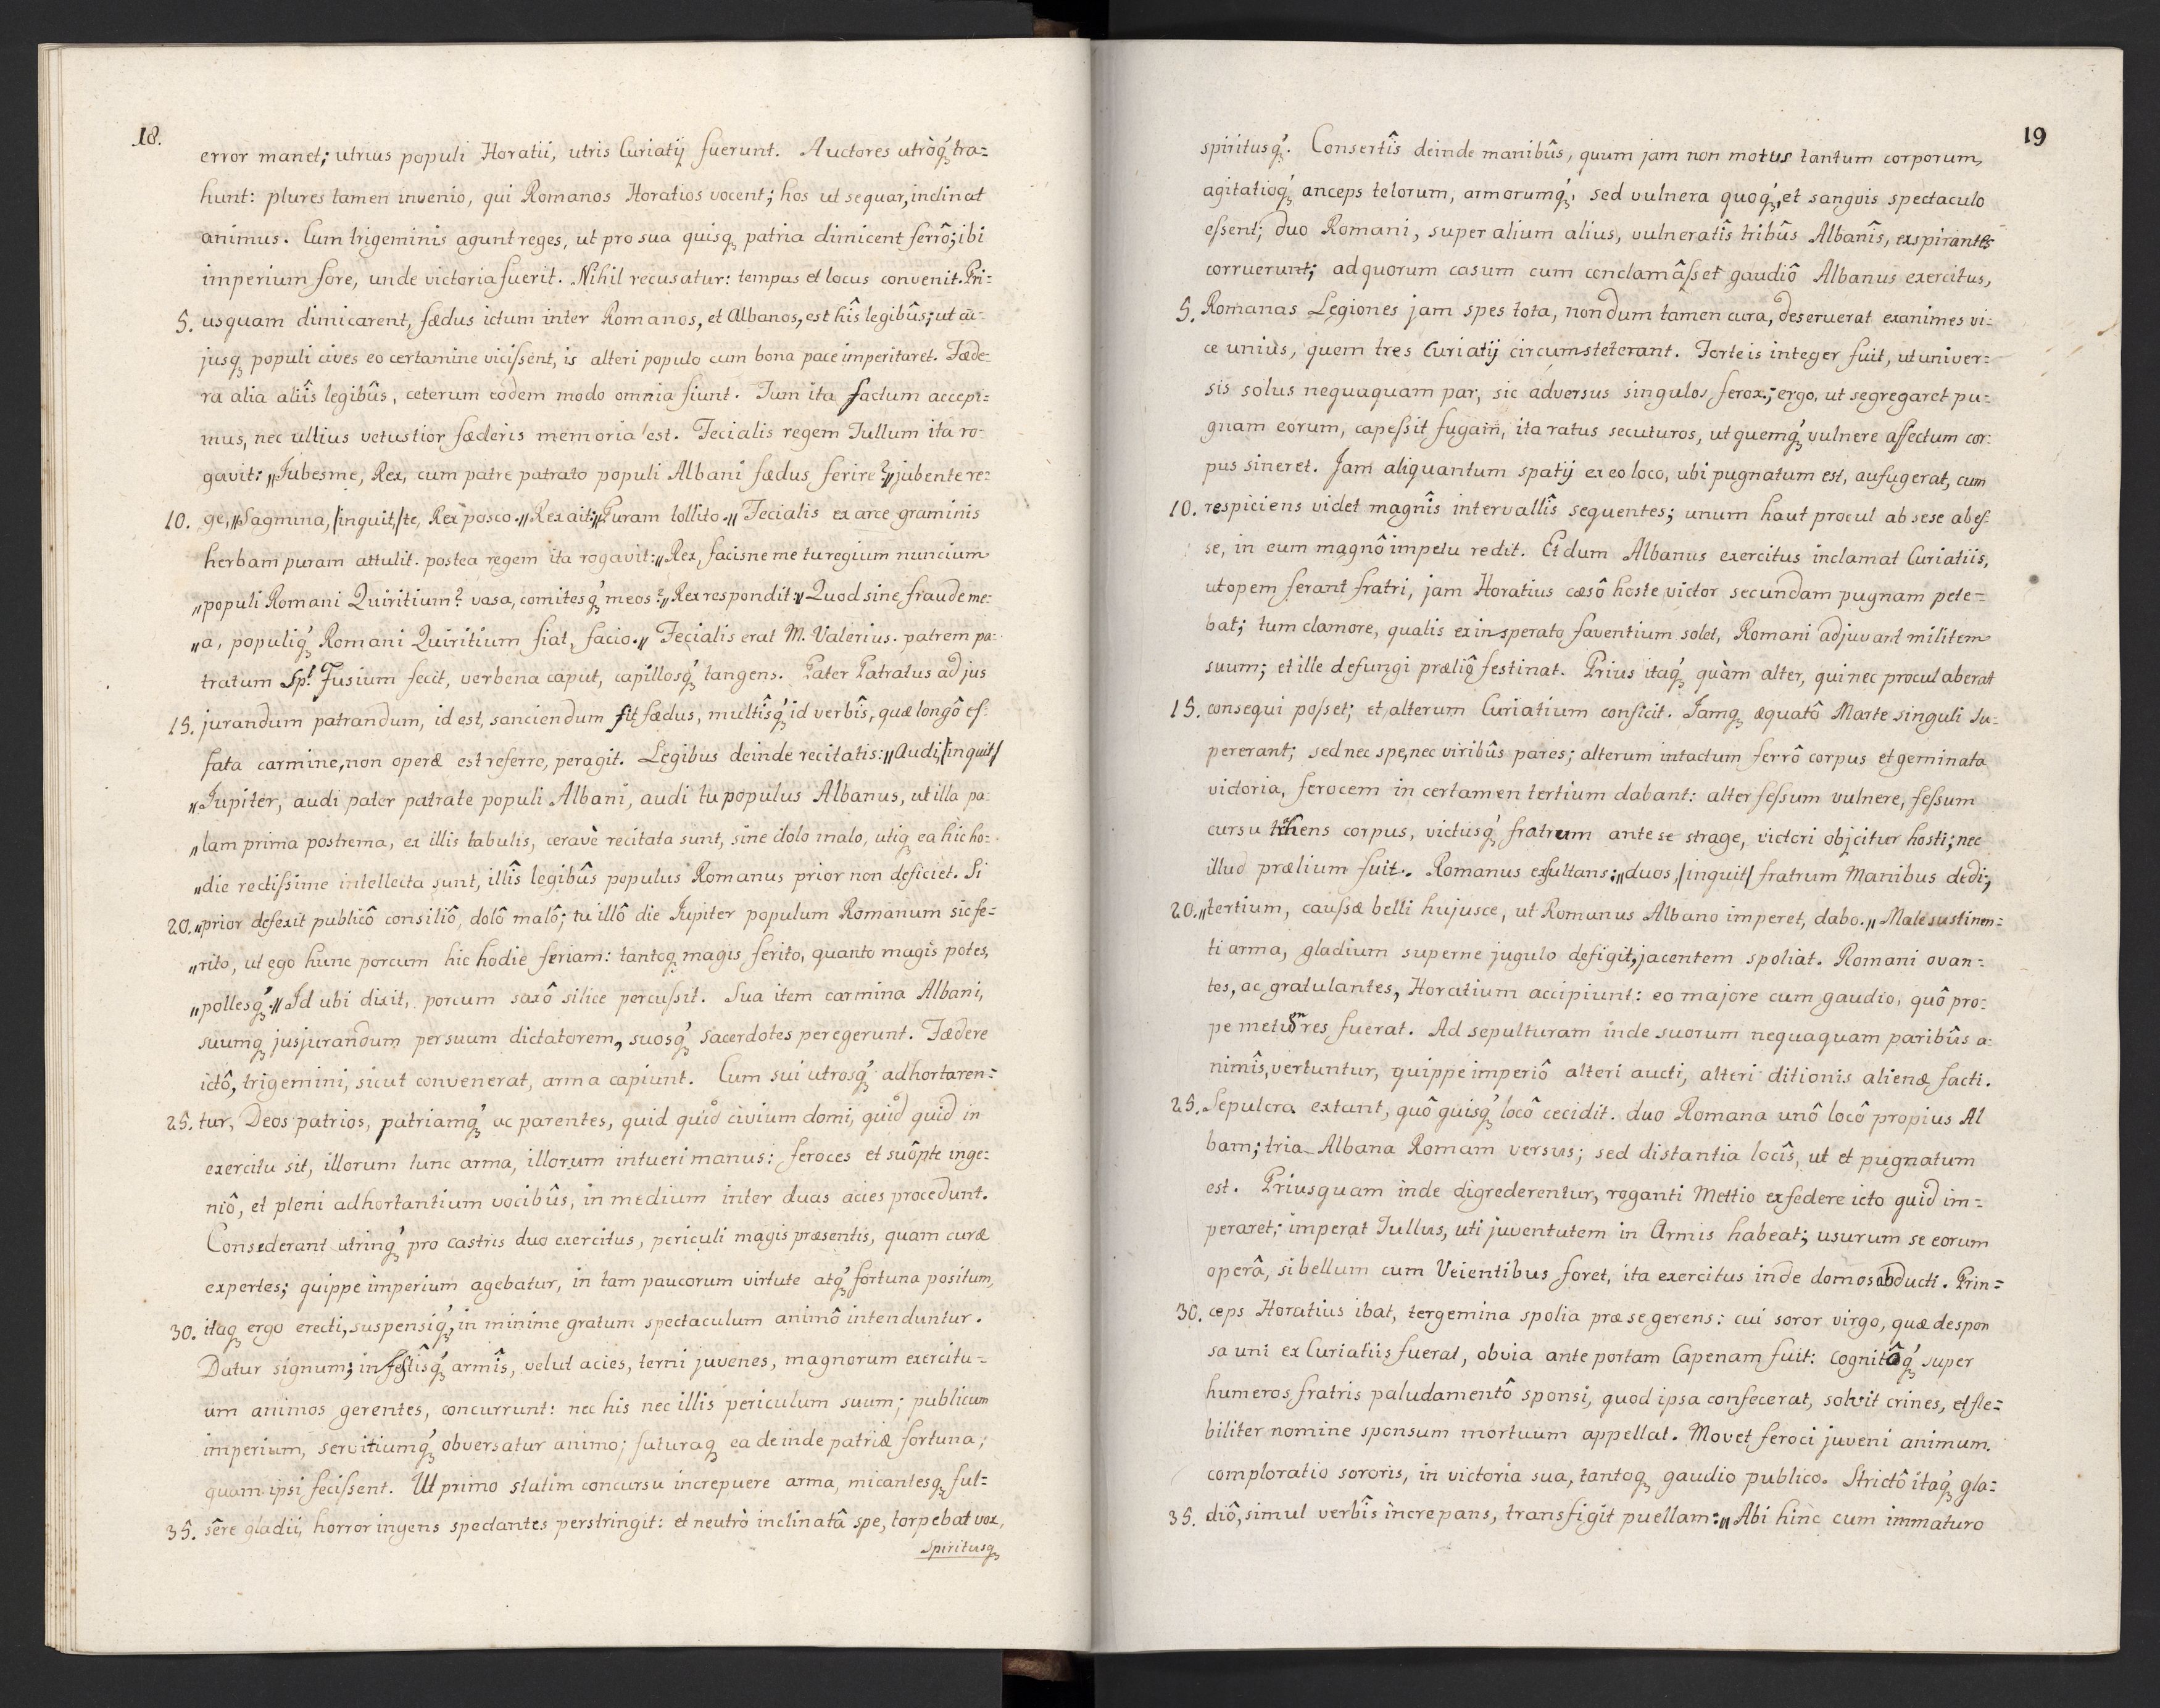 18.
error manet; utrius populi Horatii, utris Curiatij fuerunt. Auctores utròq́ꝫ tra=
hunt: plures tamen invenio, qui Romanos Horatios vocent; hos ut sequar, inclinat
animus. Cum trigeminis agunt reges, ut pro sua quisqꝫ patria dimicent ferrô; ibi
imperium fore, unde victoria fuerit. Nihil recusatur: tempus et locus convenit. Pri=
5. usquam dimicarent, fædus ictum inter Romanos, et Albanos, est hîs legibûs; ut cu=
jusqꝫ populi cives eo certamine viciſsent, is alteri populo cum bona pace imperitaret. Fæde=
ra alia aliîs legibûs, ceterum eodem modo omnia fiunt. Tum ita factum accepi=
mus, nec ullius vetustior fæderis memoria est. Fecialis regem Tullum ita ro=
gavit: „Jubesme, Rex, cum patre patrato populi Albani fædus ferire?„ jubente re=
10. ge, „Sagmina, /inquit/ te, Rex posco.„ Rex ait: „Puram tollito.„ Fecialis ex arce graminis
herbam puram attulit. postea regem ita rogavit: „Rex, facisne me tu regium nuncium
„populi Romani Quiritium? vasa, comitesq́ꝫ meos?„ Rex respondit: „Quod sine fraude me=
„a, populiq́ꝫ Romani Quiritium fiat, facio.„ Fecialis erat M. Valerius. patrem pa=
tratum Sp. Fusium fecit, verbena caput, capillosq́ꝫ tangens. Pater Patratus ad jus
15. jurandum patrandum, id est, sanciendum fit fædus, multîsq́ꝫ id verbîs, quæ longô ef=
fata carmine, non operæ est referre, peragit. Legibus deinde recitatis: „Audi, /inquit/
„Jupiter, audi pater patrate populi Albani, audi tu populus Albanus, ut illa pa=
„lam prima postrema, ex illis tabulis, ceravè recitata sunt, sine dolo malo, utiqꝫ ea hic ho=
„die rectiſsime intellecta sunt, illîs legibûs populus Romanus prior non deficiet. Si
20. „prior defexit publicô consiliô, dolô malô; tu illô die Jupiter populum Romanum sic fe=
„rito, ut ego hunc porcum hic hodie feriam: tantoqꝫ magis ferito, quanto magis potes,
„pollesq́ꝫ.„ Id ubi dixit, porcum saxô silice percuſsit. Sua item carmina Albani,
suumqꝫ jusjurandum per suum dictatorem, suosq́ꝫ sacerdotes peregerunt. Fædere
ictô, trigemini, sicut convenerat, arma capiunt. Cum sui utrosq́ꝫ adhortaren=
25. tur, Deos patrios, patriamq́ꝫ ac parentes, quid quid civium domi, quid quid in
exercitu sit, illorum tunc arma, illorum intueri manus: feroces et suôpte inge=
niô, et pleni adhortantium vocibûs, in medium inter duas acies procedunt.
Consederant utrinq́ꝫ pro castris duo exercitus, periculi magis præsentis, quam curæ
expertes; quippe imperium agebatur, in tam paucorum virtute atq́ꝫ fortuna positum,
30. itaqꝫ ergo erecti, suspensiq́ꝫ, in minime gratum spectaculum animô intenduntur.
Datur signum; infestîsq́ꝫ armîs, velut acies, terni juvenes, magnorum exercitu=
um animos gerentes, concurrunt: nec his nec illis periculum suum; publicum
imperium, servitiumq́ꝫ obversatur animo; futuraqꝫ ea deinde patriæ fortuna;
quam ipsi feciſsent. Ut primo statim concursu increpuere arma, micantesqꝫ ful=
35. sêre gladii, horror ingens spectantes perstringit: et neutrò inclinatâ spe, torpebat vox,
spiritusqꝫ
19
spiritusq́ꝫ. Consertîs deinde manibûs, quum jam non motus tantum corporum,
agitatioq́ꝫ anceps telorum, armorumq́ꝫ, sed vulnera quoq́ꝫ, et sangvis spectaculo
eſsent; duo Romani, super alium alius, vulneratîs tribûs Albanîs, exspirantes
corruerunt; ad quorum casum cum conclamâſset gaudiô Albanus exercitus,
5. Romanas Legiones jam spes tota, nondum tamen cura, deseruerat exanimes vi=
ce unius, quem tres Curiatij circumsteterant. Forte is integer fuit, ut univer=
sis solus nequaquam par, sic adversus singulos ferox; ergo, ut segregaret pu=
gnam eorum, capeſsit fugam, ita ratus secuturos, ut quemq́ꝫ vulnere affectum cor=
pus sineret. Jam aliquantum spatij ex eo loco, ubi pugnatum est, aufugerat, cum
10. respiciens videt magnîs intervallîs sequentes; unum haut procul ab sese abeſ=
se, in eum magnô impetu redit. Et dum Albanus exercitus inclamat Curiatiis,
ut opem ferant fratri, jam Horatius cæsô hoste victor secundam pugnam pete=
bat; tum clamore, qualis ex insperato faventium solet, Romani adjuvant militem
suum; et ille defungi præliô festinat. Prius itaq́ꝫ quàm alter, qui nec procul aberat
15. consequi poſset; et alterum Curiatium conficit. Jamqꝫ æquatô Marte singuli su=
pererant; sed nec spe, nec viribûs pares; alterum intactum ferrô corpus et geminata
victoria, ferocem in certamen tertium dabant: alter feſsum vulnere, feſsum
cursu trahens corpus, victusq́ꝫ fratrum ante se strage, victori objcitur hosti; nec
illud prælium fuit. Romanus exsultans: „duos, /inquit/ fratrum Manibus dedi;
20. „tertium, cauſsæ belli hujusce, ut Romanus Albano imperet, dabo.„ Male sustinen=
ti arma, gladium superne jugulo defigit, jacentem spoliat. Romani ovan=
tes, ac gratulantes, Horatium accipiunt: eo majore cum gaudio, quô pro=
pe metum res fuerat. Ad sepulturam inde suorum nequaquam paribûs a=
nimîs, vertuntur, quippe imperiô alteri aucti, alteri ditionis alienæ facti.
25. Sepulcra extant, quô quisq́ꝫ locô cecidit. duo Romana unô locô propius Al
bam; tria Albana Romam versus; sed distantia locîs, ut et pugnatum
est. Priusquam inde digrederentur, roganti Mettio ex fædere icto quid im=
peraret; imperat Tullus, uti juventutem in Armis habeat; usurum se eorum
operâ, si bellum cum Veientibus foret, ita exercitus inde domos abducti. Prin=
30. ceps Horatius ibat, tergemina spolia præ se gerens: cui soror virgo, quæ despon
sa uni ex Curiatiis fuerat, obvia ante portam Capenam fuit: cognitôq́ꝫ super
humeros fratris paludamentô sponsi, quod ipsa confecerat, solvit crines, et fle=
biliter nomine sponsum mortuum appellat. Movet feroci juveni animum.
comploratio sororis, in victoria sua, tantoqꝫ gaudio publico. Strictô itaq́ꝫ gla=
35. diô, simul verbîs increpans, transfigit puellam: „Abi hinc cum immaturo